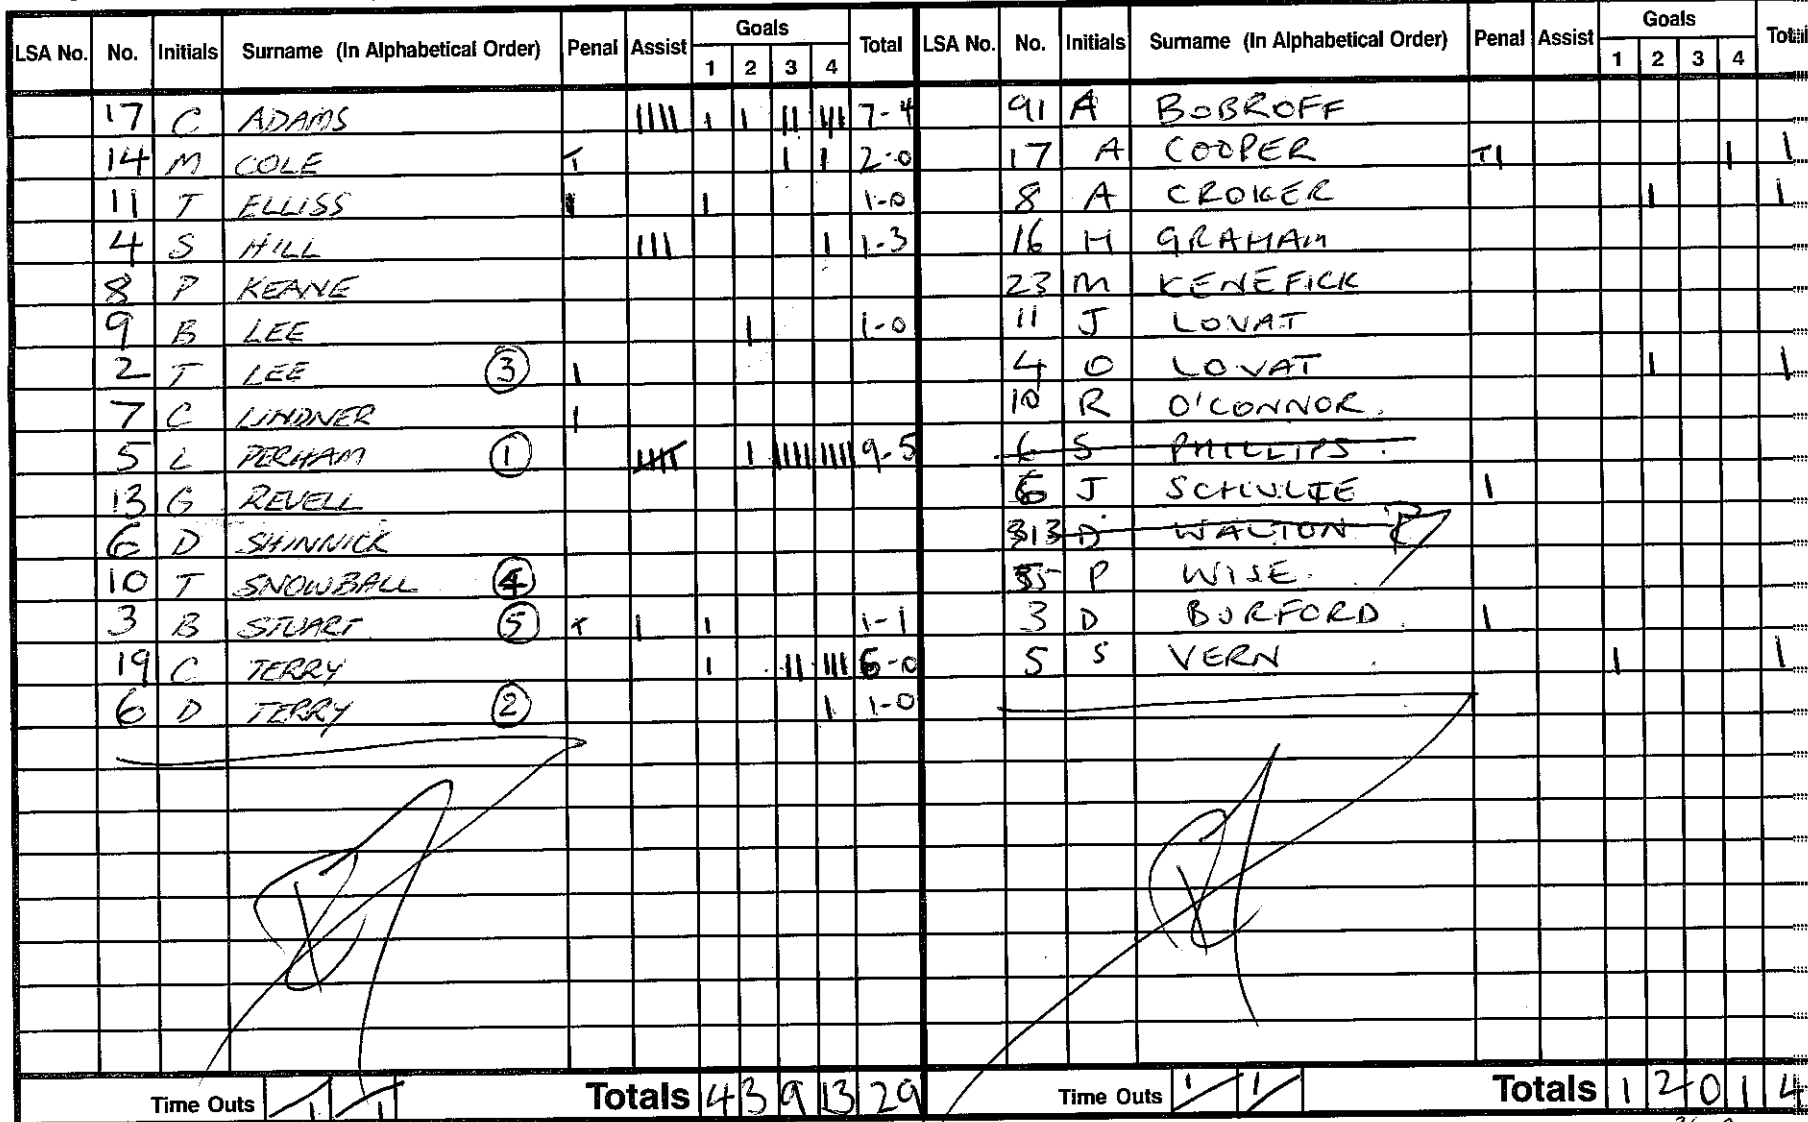 LSA No. No. Initials Surname (In Alphabetical Order) Penal Assist Goals 1 2 3 4 Total
17 C ADAMS IIII I I II III 7-4
14 M COLE T I I 2-0
11 T ELLISS I I 1-0
4 S HILL III I 1-3
8 P KEANE
9 B LEE I 1-0
2 T LEE 3 I
7 C LINDNER I
5 L PERHAM 1 IIIII I IIII IIII 9-5
13 G REVELL
6 D SHINNICK
10 T SNOWBALL 4
3 B STUART 5 T I I 1-1
19 C TERRY I II III 6-0
6 D TERRY 2 I 1-0
Time Outs 1 1 Totals 4 3 9 13 29
LSA No. No. Initials Surname (In Alphabetical Order) Penal Assist Goals 1 2 3 4 Total
91 A BOBROFF
17 A COOPER TI I 1
8 A CROKER I 1
16 H GRAHAM
23 M KENEFICK
11 J LOVAT
4 O LOVAT I 1
10 R O'CONNOR
6 S PHILLIPS
6 J SCHULTE I
313 D WALTON
P WISE
3 D BURFORD I
5 S VERN I 1
Time Outs 1 1 Totals 1 2 0 1 4